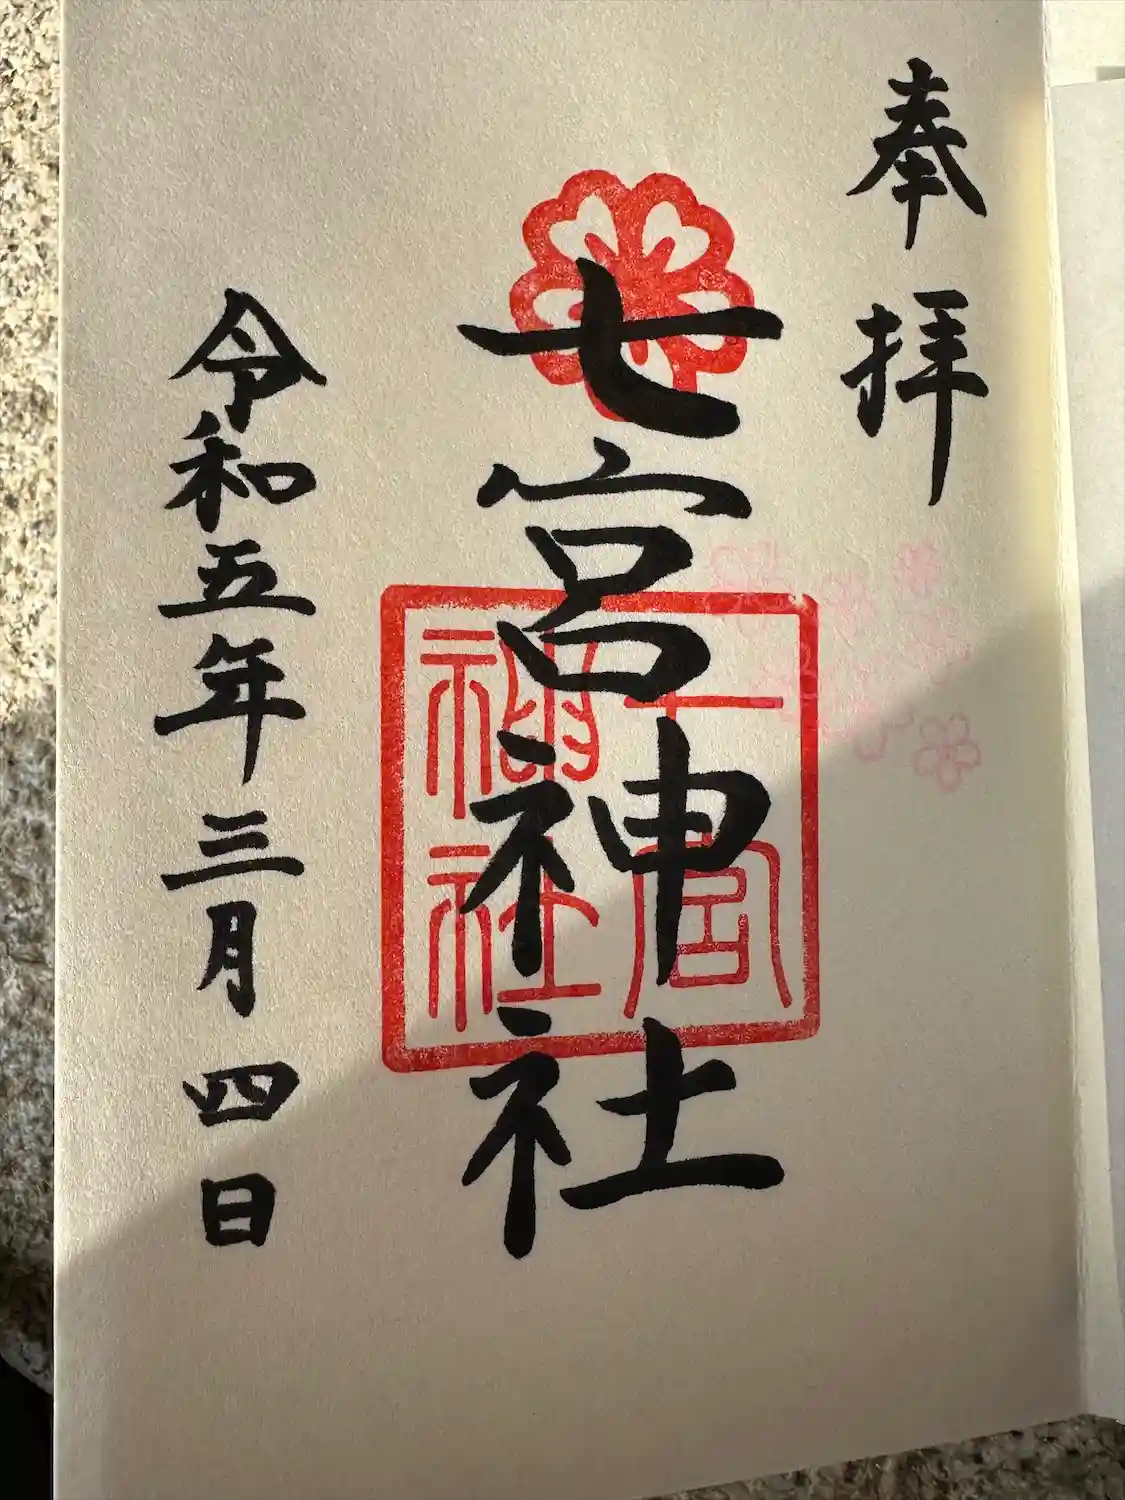 奉拝
七宮神社
七宮神社
令和五年三月四日